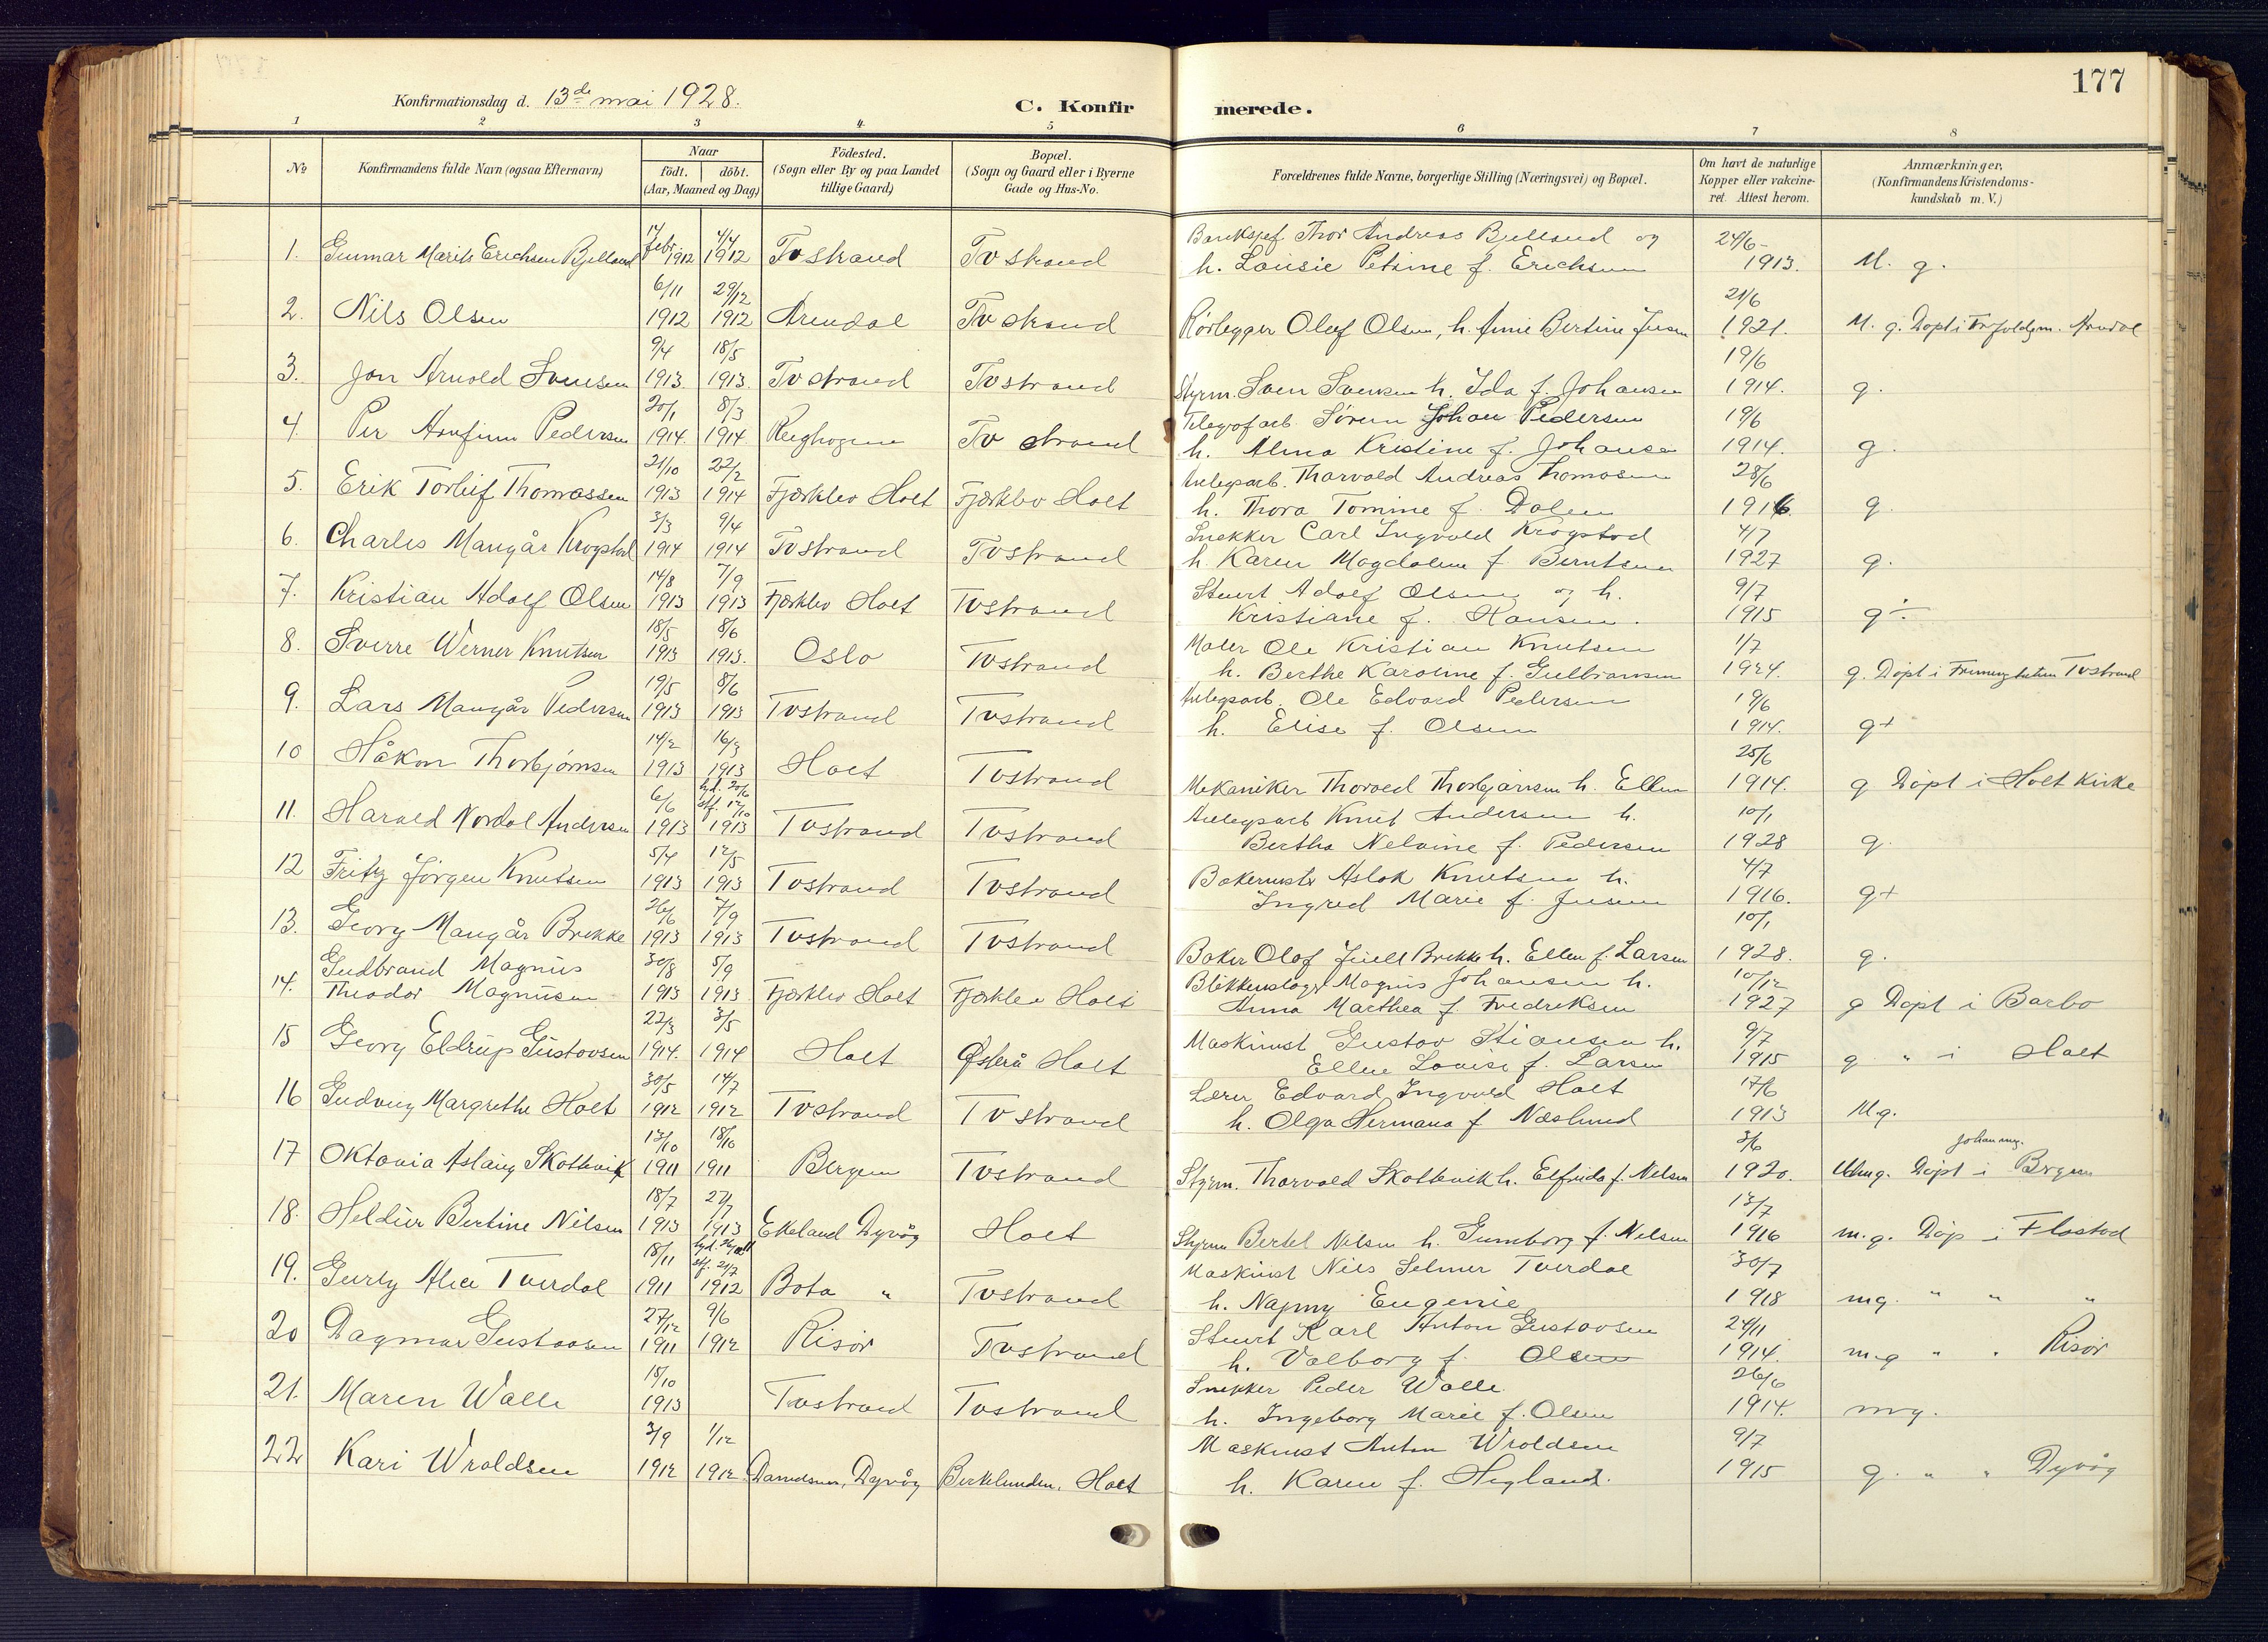 177
Konfirmationsdag d. 13de mai 1928.
C. Konfirmerede.
1 2 3 4 5 6 7 8
No
Konfirmandens fulde Navn (ogsaa Efternavn)
Naar
födt. döbt.
(Aar, Maaned og Dag)
Födested.
(Sogn eller By og paa Landet
tillige Gaard)
Bopæl.
(Sogn og Gaard eller i Byerne
Gade og Hus-No.
Forældrenes fulde Navne, borgerlige Stilling (Næringsvei) og Bopæl.
Om havt de naturlige
Kopper eller vakcine-
ret. Attest herom.
Anmærkninger,
(Konfirmandens Kristendoms-
kundskab m. V.)
17 4/4 Banksjef Thor Andreas Bjelland og 24/6-
1. Gunnar Marits Erichsen Bjelland febr 1912 1912 Tvestrand Tvestrand h. Louise Petrine f. Erichsen 1913. M. g.
6/11 29/12 21/6
2. Nils Olsen 1912 1912 Arendal Tvestrand Rørlegger Oluf Olsen, h. Anne Bertine Jensen 1921. M. g. Døpt i Arendal
9/4 18/5 19/6
3. Jon Arnold Svensen 1913. 1913. Tvestrand Tvestrand Styrm. Sven Svensen h. Ida f. Johansen 1914. g.
20/1 8/3 Telegrafarb Søren Johan Pedersen 19/6
4. Per Arnfinn Pedersen 1914. 1914 Tvestrand h. Alma Kristine f. Johansen 1914. g.
21/10 22/2 Anlegsarb. Tharvald Andreas Thomasen 28/6
5. Erik Torleif Thomassen 1913 1914 Fjærklev Holt Fjærklev Holt h. Thora Tomine f. Dalen 1916 g.
3/3 9/4 Snekker Carl Ingvald Krogstad 4/7
6. Charles Mangår Krogstad 1914 1914 Tvestrand Tvestrand h. Karen Magdalene f. Berntsen 1927 g.
14/8 7/9 Stuert Adolf Olsen og h. 9/7
7. Kristian Adolf Olsen 1913 1913 Fjærklev Holt Tvestrand Kristiane f. Hansen. 1915 g÷
18/5 8/6 Maler Ole Kristian Knutsen 1/7
8. Sverre Werner Knutsen 1913 1913. Oslo Tvestrand h. Berthe Karoline f. Gulbransen 1924. g. Døpt i Tvestrand
19/5 8/6 Anlegsarb. Ole Edvard Pedersen 19/6
9. Lars Mangår Pedersen 1913 1913 Tvestrand Tvestrand h. Elise f. Olsen 1914. g+
14/2 16/3 25/6
10 Håkon Thorbjørnsen 1913 1913 Holt Tvestrand Mekaniker Thorvald Thorbjørnsen h. Ellen 1914. g Døpt i Holt Kirke
6/6 hjd. 20/6 stf. 12/10 Anlegsarb Knut Andersen h. 10/1
11. Harald Nordal Andersen 1913 1913 Tvestrand Tvestrand Bertha Nelvine f. Pedersen 1928 g.
5/4 12/5 Bakermstr Aslak Knutsen h. 4/7
12 Fritz Jörgen Knutsen 1913 1913 Tvestrand Tvestrand Ingrid Marie f. Jensen 1916. g+
26/6 7/9 10/1
13. Georg Mangår Brekke 1913 1913 Tvestrand Tvestrand Baker Olaf Juell Brekke h. Ellen f. Larsen 1928. g.
Gudbrand Magnus 30/8 5/9 Blikkenslager Magnus Johansen h. 10/12
14. Theodor Magnusen 1913 1913 Fjærklev Holt Fjærklev Holt Anna Marthea f. Fredriksen 1927 g Døpt i Barbo
22/3 3/5 Maskinist Gustav Stiansen h. 9/7
15 Georg Eldrup Gustavsen 1914. 1914 Holt Østerå Holt Ellen Louise f. Larsen 1915 g " i Holt
30/5 14/7 Lærer Edvard Ingvald Holt 17/6
16 Gudveig Margrethe Holt 1912 1912 Tvestrand Tvestrand h. Olga Hermana f Næslund 1913 M.g.
13/10 18/10 3/6 Johannes.
17 Oktavia Aslaug Skottevik 1911 1911 Bergen Tvestrand Styrm. Tharvald Skottevik h. Elfrida f. Nilsen 1920. Udm.g. Døpt i Bergen
18/7 27/7 13/7
18. Heldur Bertine Nilsen 1913 1913 Ekeland Dyvåg Holt Styrm Bertel Nilsen h. Gunnborg f. Nilsen 1916 m.g. Døp i Flostad
18/11 stf. 21/7 Maskinist Nils Selmer Tverdal 30/7
19. Gurly Alice Tverdal 1911 1912 Bota " Tvestrand h. Najmy Eugenie 1918 mg. " " "
27/12 9/6 Stuert Karl Anton Gustavsen 24/11
20 Dagmar Gustavsen 1911 1912 Risør Tvestrand h. Valborg f. Olsen 1914. m.g " " Risør
18/10 Snekker Peder Walle 26/6
21. Maren Walle 1913 Tvestrand Tvestrand h. Ingeborg Marie f. Olsen 1914. mg.
3/9 1/12 Maskinist Anton Wroldsen 9/7
22 Kari Wroldsen 1912 1912 Dyvåg Berkelunden, Holt h. Karen f. Hegland. 1915 g. " " Dyvåg